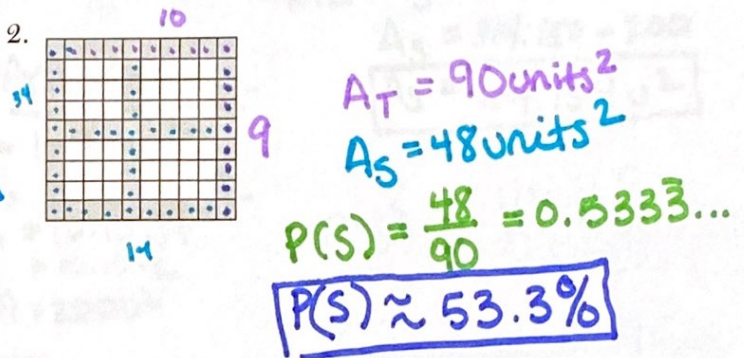 10
2.
34
9
14
A_T = 90 units²
A_S = 48 units²
P(S) = 48/90 = 0.533̅3...
P(S) ≈ 53.3%